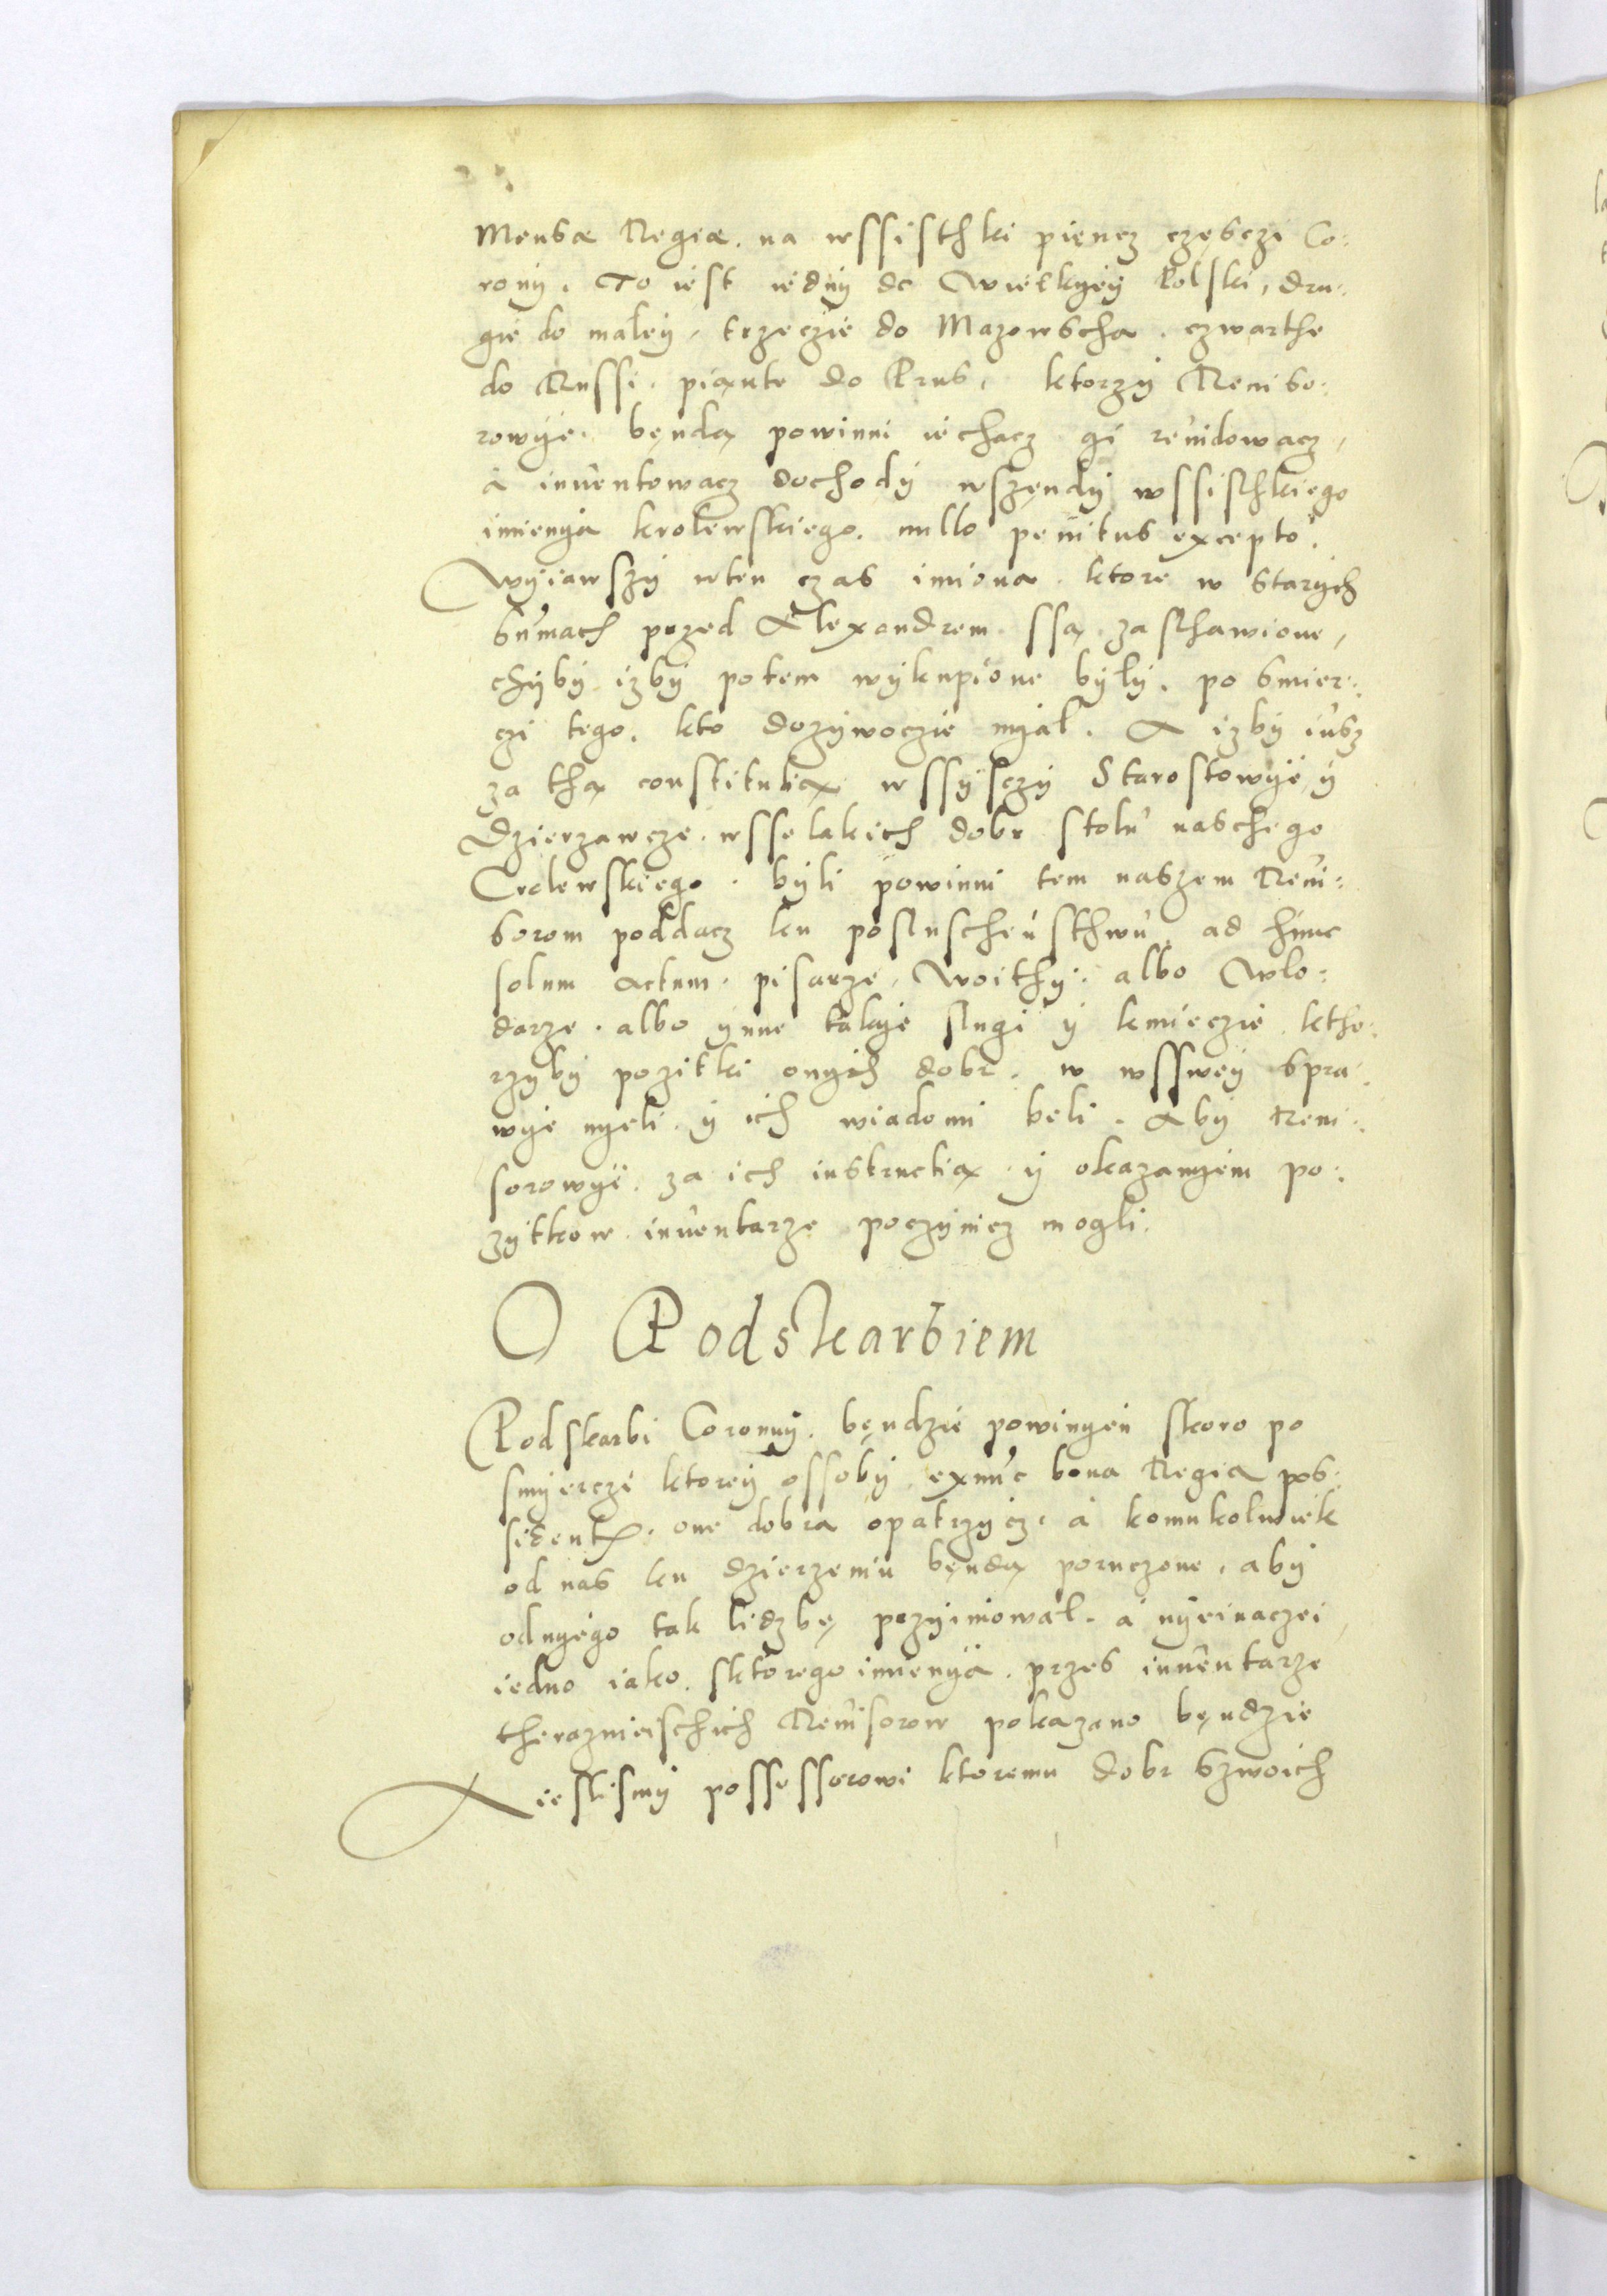 Mensæ Regiæ. na wssisthki pięncz częsczi Co:
rony. To iest iedny do Wielkyey Polski, dru:
gie do maley, trzeczie do Mazowscha. czwarthe
do Russi. piąnte do Prus, ktorzy Reuiso:
rowye. będą powinni iechacz gi reuidowacz,
a inuentowacz dochody wszędy wssisthkiego
imienya krolewskiego. nullo penitus excepto.
Wyiawszy wten czas imiona. ktore w starych
sumach przed Alexandrem. ssą zasthawione,
chyby izby potem wykupione były. po smier:
czi tego. kto dozywoczie myał. A izby iusz
za thą constitutią wssysczy Starostowye y
Dzierzawcze. wsselakich dobr stołu naschego
Crolewskiego. byli powinni tem naszem Reui:
sorom poddacz ku poslusheństhwu, ad hunc
solum actum. pisarze, Woithy. albo Wlo:
darze. albo ynne takye slugi y kmieczie. ktho:
rzyby pozitki onych dobr. w wsswey spra:
wye myeli. y ich wiadomi beli. Aby Reui:
sorowye. za ich instructią. y okazanyem po:
zytkow. inuentarze poczynicz mogli.
O Podskarbiem
Podskarbi Coronny. będzie powinyen skoro po
smyerczi ktorey ossoby. exnuc bona Regia pos:
sident. one dobra opatrzycz. a komukolwiek
od nas ku dzierzeniu będą poruczone. aby
odnyego tak lidzbę przyimował. a nyeinaczei,
iedno iako. sktorego imienya. przes inuentarze
theraznieischich Reuisorow pokazano będzie
A ieslismy possessorowi ktoremu dobr szwoich